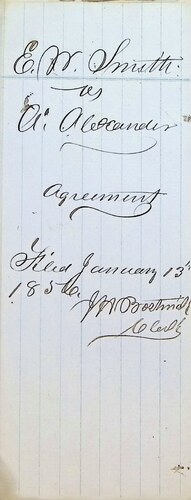 E. W. Smith.
vs
A. Alexander
Agreement
Filed January 13th
1856.
J W Bostwick
Clerk